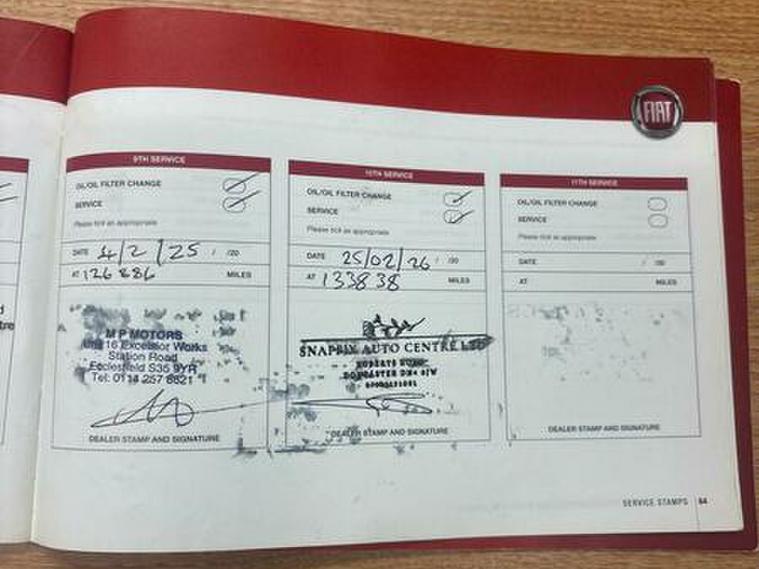 FIAT
9TH SERVICE
OIL/OIL FILTER CHANGE
SERVICE
Please tick as appropriate
DATE 4/2/25 / /20
AT 126 886 MILES
M P MOTORS
Unit 16 Excelsior Works
Station Road
Ecclesfield S35 9YR
Tel: 0114 257 8821
DEALER STAMP AND SIGNATURE
10TH SERVICE
OIL/OIL FILTER CHANGE
SERVICE
Please tick as appropriate
DATE 25/02/26 / /20
AT 133838 MILES
AUTO CENTRE LTD
DONCASTER
DEALER STAMP AND SIGNATURE
11TH SERVICE
OIL/OIL FILTER CHANGE
SERVICE
Please tick as appropriate
DATE / /20
AT MILES
DEALER STAMP AND SIGNATURE
SERVICE STAMPS 64